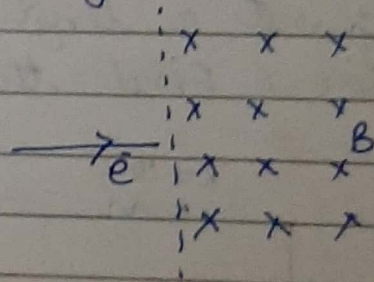 x x x
x x x
B
e
x x x
x x x